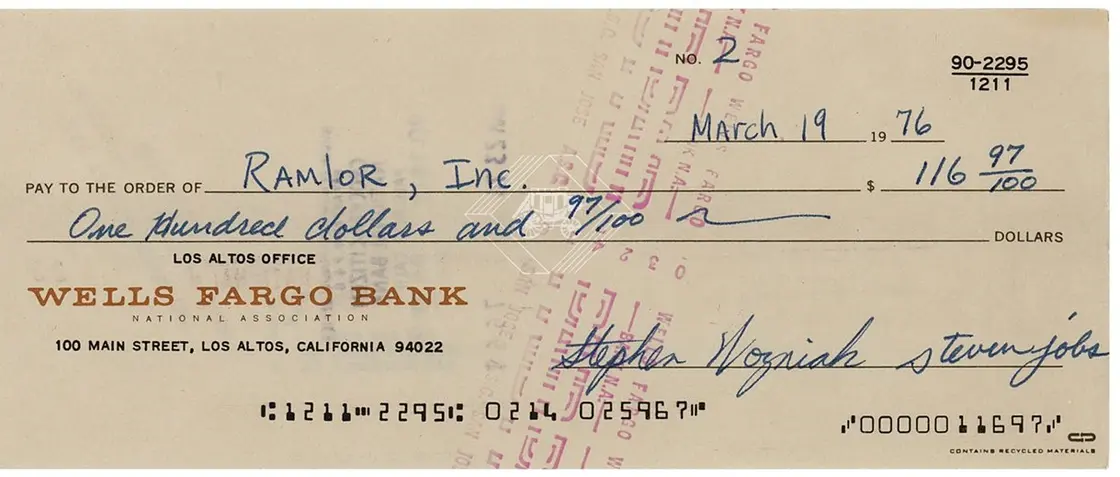 NO. 2
90-2295
1211
March 19 1976
PAY TO THE ORDER OF Ramlor, Inc. $ 116 97/100
One Hundred dollars and 97/100 DOLLARS
LOS ALTOS OFFICE
WELLS FARGO BANK
NATIONAL ASSOCIATION
100 MAIN STREET, LOS ALTOS, CALIFORNIA 94022
Stephen Wozniak steven jobs
⑆1211⑉2295⑆ 0214 025967⑈ ⑇0000011697⑇
CONTAINS RECYCLED MATERIALS